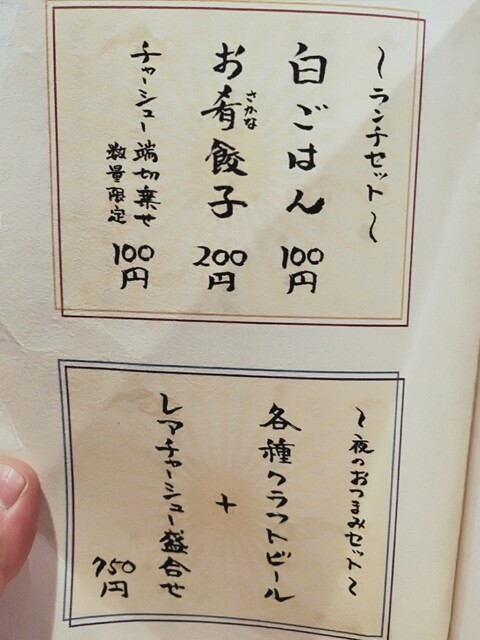 〜ランチセット〜
白ごはん 100円
お肴餃子 200円
さかな
チャーシュー端切乗せ 100円
数量限定
〜夜のおつまみセット〜
各種クラフトビール
+
レアチャーシュー盛合せ
750円